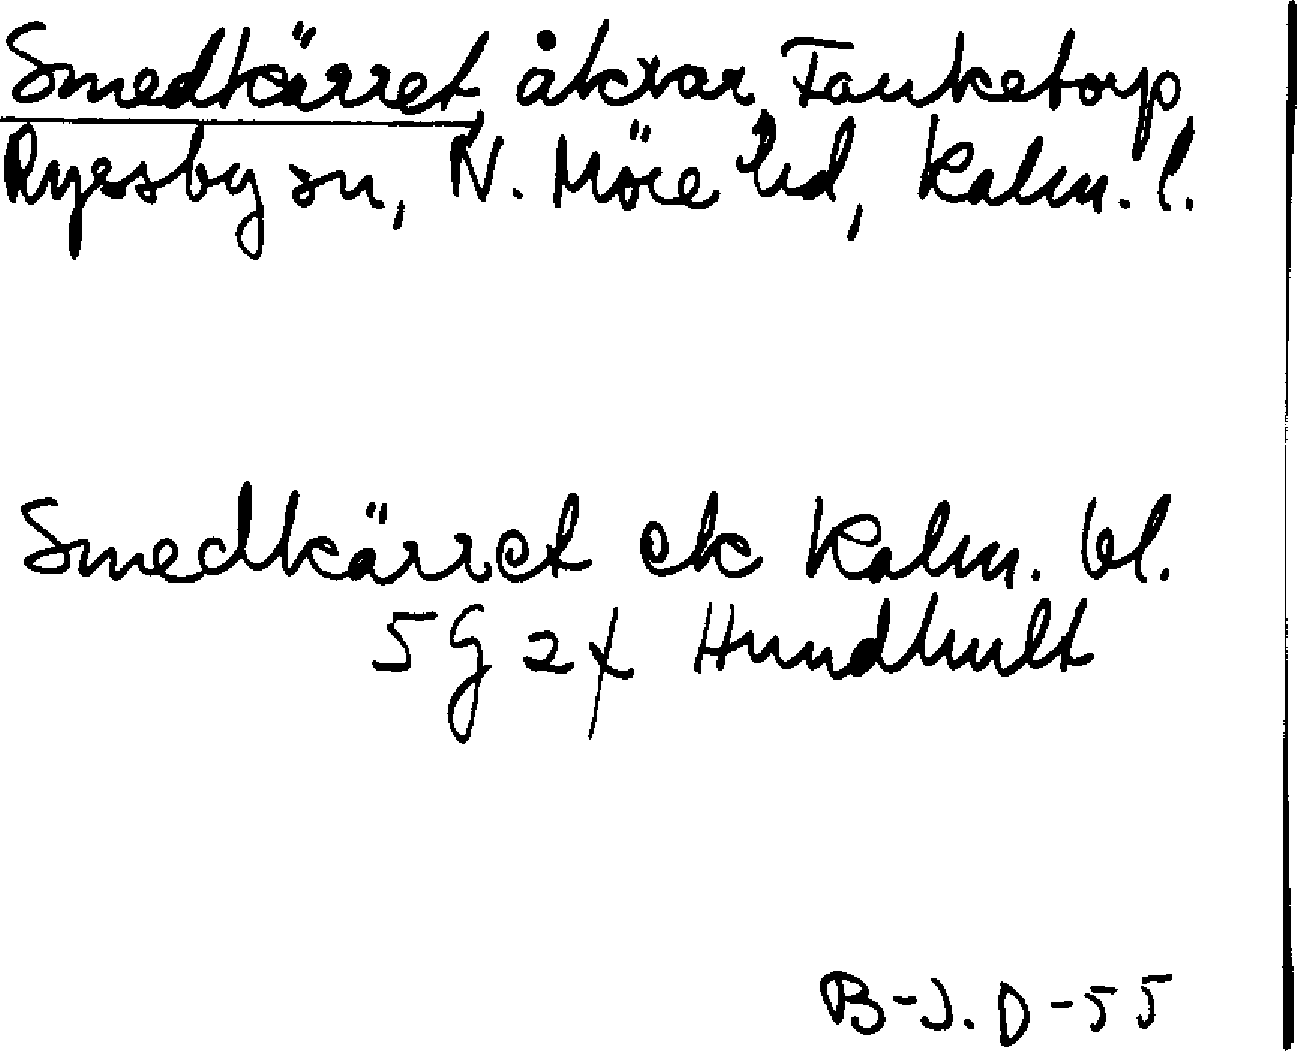 Smedkärret, åkrar, Tanketorp,
Ryssby sn, N. Möre hd, Kalm. l.
Smedkärret ek Kalm. bl.
5 G 2 f Hundhult
B-J. D-55